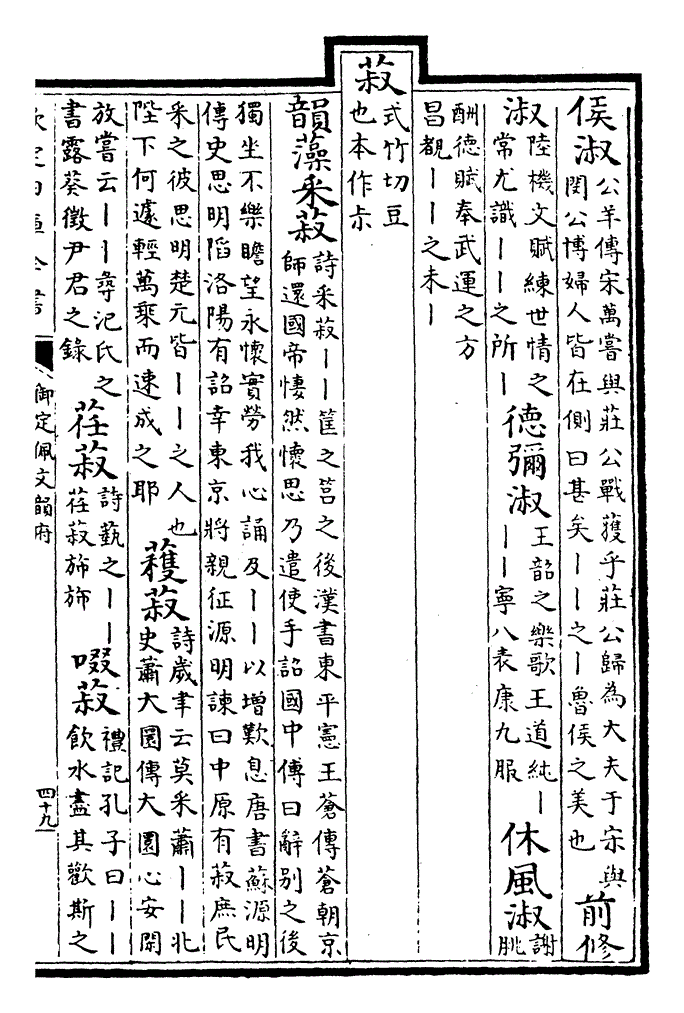 侯淑公羊傳宋萬嘗與莊公戰獲乎莊公歸為大夫于宋與
閔公博婦人皆在側曰甚矣丨丨之丨魯侯之美也前修
淑陸機文賦練世情之
常尤識丨丨之所丨德彌淑王韶之樂歌王道純丨
丨丨寧八表康九服休風淑謝
朓
酬德賦奉武運之方
昌覩丨丨之未丨
菽式竹切豆
也本作尗
韻藻采菽詩采菽丨丨筐之筥之後漢書東平憲王蒼傳蒼朝京
師還國帝悽然懷思乃遣使手詔國中傅曰辭别之後
獨坐不樂瞻望永懷實勞我心誦及丨丨以增歎息唐書蘇源明
傳史思明陷洛陽有詔幸東京將親征源明諫曰中原有菽庶民
采之彼思明楚元皆丨丨之人也
陛下何遽輕萬乘而速成之耶穫菽詩歲聿云莫采蕭丨丨北
史蕭大圜傳大圜心安閑
放嘗云丨丨尋氾氏之
書露葵徵尹君之錄荏菽詩蓺之丨丨
荏菽旆旆啜菽禮記孔子曰丨丨
飲水盡其歡斯之
欽定四庫全書
御定佩文韻府
四十九